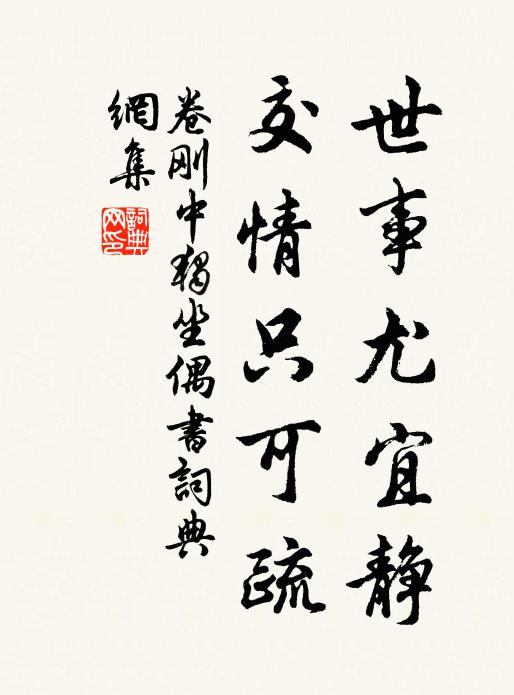 世事尤宜静
交情只可疏
卷刚中独坐偶書詞典
網集
詞典网印